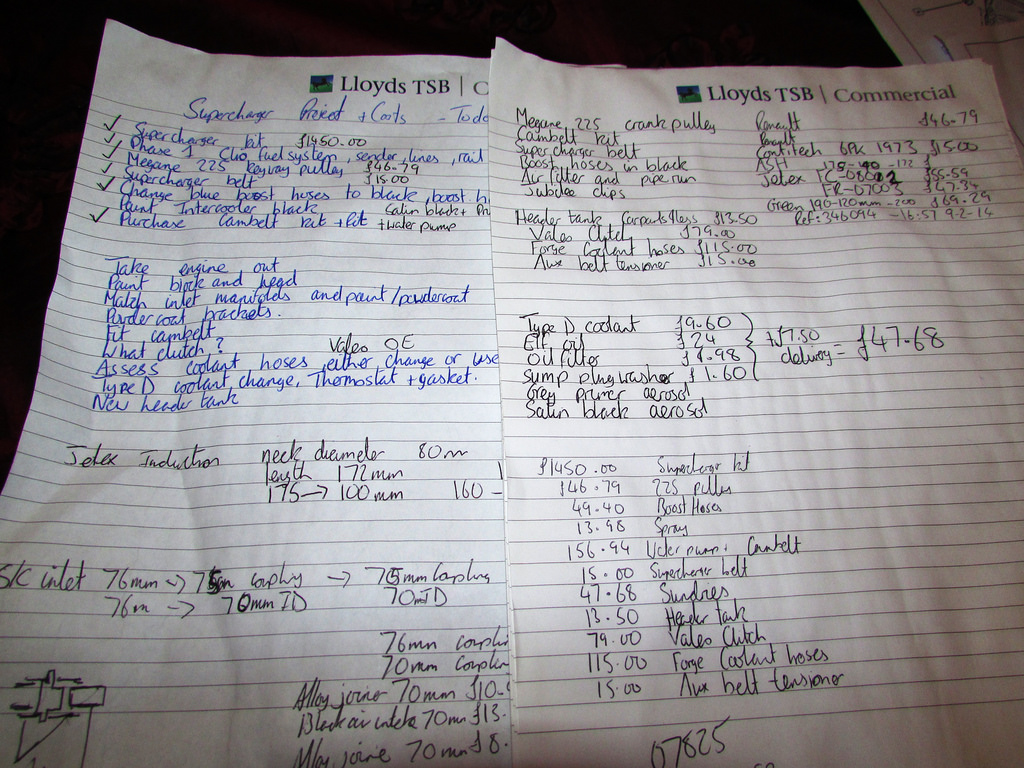 Lloyds TSB | C
Supercharger Project + Costs - To do
Supercharger kit £1450.00
Phase 1 Clio, fuel system, sender, lines, rail
Megane 225 keyway pulley £46-79
Supercharger belt £15.00
Change blue boost hoses to black, boost h
Paint Intercooler black Satin black +
Purchase cambelt kit + fit + water pump
Take engine out
Paint block and head
Match inlet manifolds and paint/powdercoat
Powdercoat brackets.
Fit cambelt
What clutch? Valeo OE
Assess coolant hoses, either change or use
Type D coolant change, Thermostat + gasket.
New header tank
Jetex Induction neck diameter 80m
length 172mm
175 → 100mm 160 -
S/C inlet 76mm → 75mm coupling → 75mm Coupling
76m → 70mm ID 70mID
76mm couplin
70mm Couplin
Alloy joiner 70mm £10-
Black air intake 70mm £13.
Alloy joine 70mm £8.
Lloyds TSB | Commercial
Megane 225 crank pulley Renault £46-79
Cambelt kit Renault
Supercharger belt Contitech 6PK 1973 £15.00
Boost hoses, in black ASH
Air filter and pipe run Jetex £55-59
Jubilee clips FR-07003 £67.34
Green 190-120mm-200 £69.29
Header tank carparts4less £13.50 Ref: 346094 - 16:57 9-2-14
Valeo Clutch £79.00
Forge Coolant hoses £115.00
Aux belt tensioner £15.00
Type D coolant £9.60
Elf oil £24
Oil filter £4.98
Sump plug washer £1.60
+ £7.50 delivery = £47.68
Grey primer aerosol
Satin black aerosol
£1450.00 Supercharger kit
£46.79 225 pulley
49.40 Boost Hoses
13.98 Spray
156.94 Water pump + Cambelt
15.00 Supercharger belt
47.68 Sundries
13.50 Header tank
79.00 Valeo Clutch
115.00 Forge Coolant hoses
15.00 Aux belt tensioner
07825